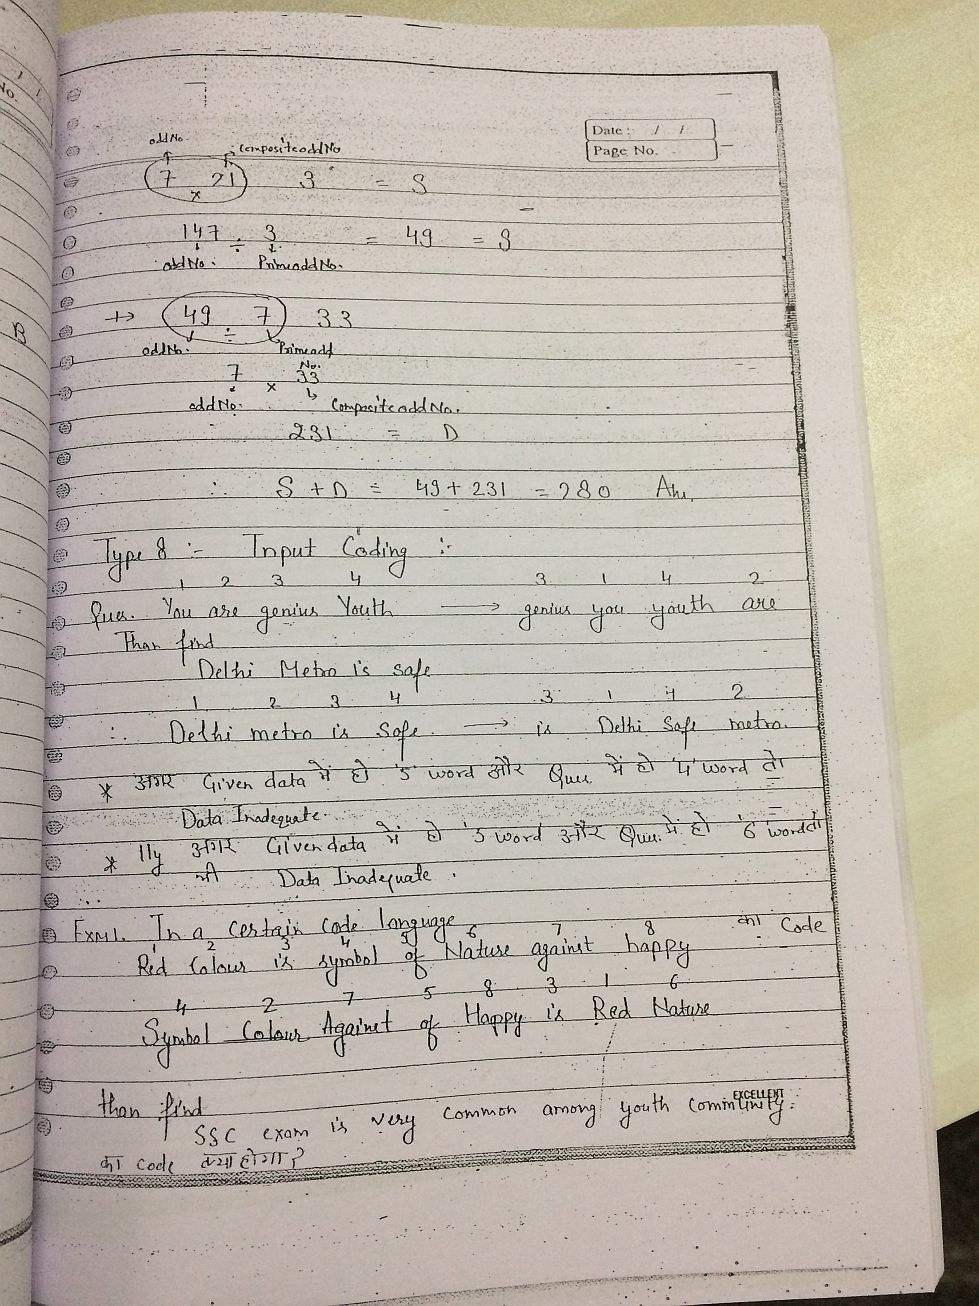 No.
B
Date : / /
Page No.
odd No. Composite odd No
7 × 21 3 = S
147 ÷ 3 = 49 = S
odd No. Prime odd No.
49 ÷ 7 33
odd No. Prime odd No.
7 × 33
odd No. Composite odd No.
231 = D
∴ S + D = 49 + 231 = 280 Ans.
Type 8 :- Input Coding :-
1 2 3 4 3 1 4 2
Ques. You are genius Youth → genius you youth are
Than find
Delhi Metro is safe
1 2 3 4 3 1 4 2
∴ Delhi metro is Safe → is Delhi Safe metro.
* अगर Given data में हो '5' word और Que. में हो '4' word तो
Data Inadequate.
* lly अगर Given data में हो '5 word और Que. में हो '6' word तो
भी Data Inadequate.
Exm1. In a certain code language
1 2 3 4 5 6 7 8
Red Colour is symbol of Nature against happy का Code
4 2 7 5 8 3 1 6
Symbol Colour Against of Happy is Red Nature
than find
SSC exam is very common among youth community.
EXCELLENT
का code क्या होगा?